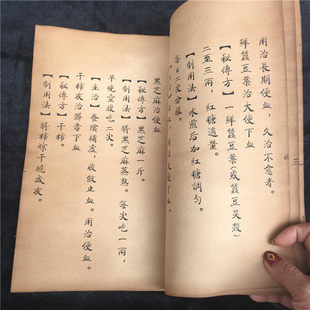 用治長期便血，久治不愈者。
鮮蠶豆葉治大便下血
【秘傳方】一鮮蠶豆葉（或蠶豆荚殼）
二至三兩，紅糖適量。
【制用法】水煎后加紅糖調勻。
每日二次分服。
黑芝麻治便血
【秘傳方】黑芝麻一斤。
【制用法】將黑芝麻蒸熟。每次吃一兩，
早晚空腹吃二次。
【主治】養陰補虛，收斂止血。用治便血。
干柿灰治臟毒下血
【秘傳方】干柿。
【制用法】將柿晾干燒成灰。